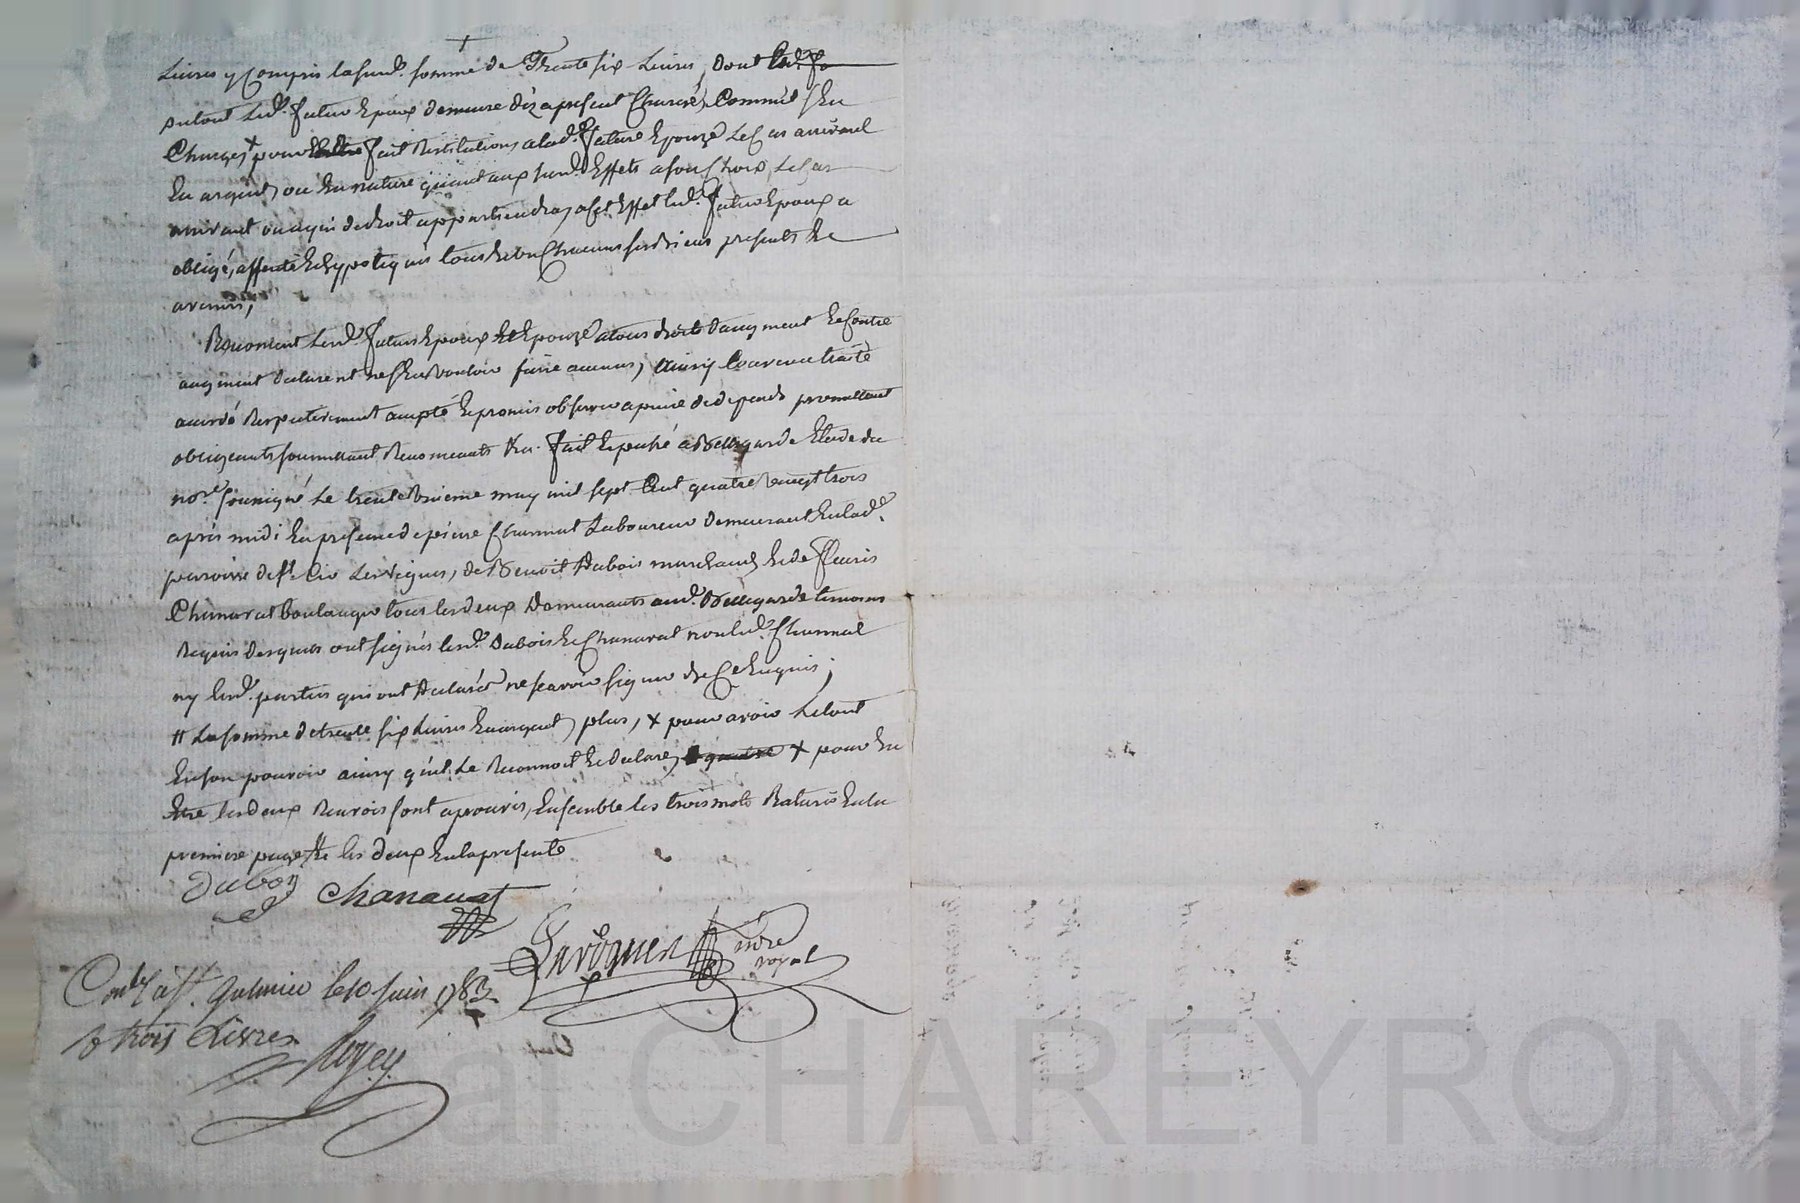 Livres y Compris lasusd. somme de Trente six Livres, dont
du tout Led. futur Epoux demeure déz a present Chargé, Comme il s'en
Charge, + pour fait Restitutions alad. future Epouze Le Cas arrivant
En argent, ou En nature quant aux susd. Effets a son Choix, Le Cas
arrivant ou a qui de droit appartiendra, a Cet Effet led. futur Epoux a
obligé, affecté Et hypotequé tous Et un Chacuns ses biens presents Et
avenir,
Renoncent Lesd. futurs Epoux Et Epouze a tous droits d'augment Et Contre
augment declarent ne s'En vouloir faire aucuns, Ainsy Convenu traité
accordé Respectivement accepté Et promis observer a peine de depends promettant
obligeants soumettant Renonceants &a. fait Et passé a Bellegarde Etude du
nore. soussigné Le trente Unieme may mil sept Cent quatre vingt trois
après midi En presence de pierre Charmet Laboureur demeurant En lad.
paroisse de st. Cir Les vignes, de Benoit Dubois marchand Et de fleuris
Chanavat Boulanger tous les deux Demeurants aud. Bellegarde temoins
Requis Lesquels ont signés lesd. Dubois Et Chanavat non led. Charmet
ny lesd. parties qui ont declaré ne scavoir signer de Ce Enquis;
# La somme de trente six Livres En argent, plus, + pour avoir Le tout
En son pouvoir ainsy qu'il Le Reconnoit Et declare, + pour En
Etre les deux Renvois sont aprouvés, Ensemble les trois mots Raturés En la
premiere page Et les deux En la presente
Duboy Chanavat
nore
royal
Conlé à st. Galmier le 10 juin 1783
trois Livres
al CHAREYRON